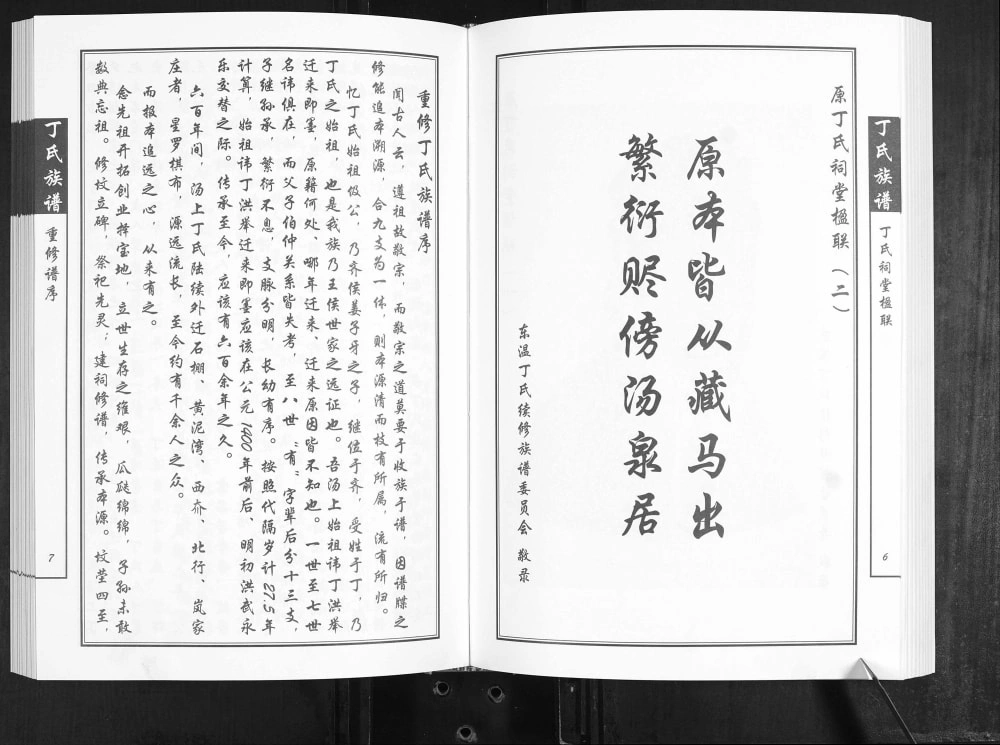 丁氏族谱
丁氏祠堂楹联
6
原丁氏祠堂楹联（二）
原本皆从藏马出
繁衍贮傍汤泉居
东温丁氏续修族谱委员会 敬录
重修丁氏族谱序
闻古人云，遵祖故敬宗，而敬宗之道莫要于收族于谱，因谱牒之
修能追本溯源，合九支为一体，则本源清而枝有所属，流有所归。
忆丁氏始祖伋公，乃齐侯姜子牙之子，继位于齐，受姓于丁，乃
丁氏之始祖，也是我族乃王侯世家之远证也。吾汤上始祖讳丁洪举
迁来即墨，原籍何处、哪年迁来、迁来原因皆不知也。一世至七世
名讳俱在，而父子伯仲关系皆失考，至八世“有”字辈后分十三支，
子继孙承，繁衍不息，支脉分明，长幼有序。按照代隔岁计27.5年
计算，始祖讳丁洪举迁来即墨应该在公元1400年前后、明初洪武永
乐交替之际。传承至今，应该有六百余年之久。
六百年间，汤上丁氏陆续外迁石棚、黄泥湾、西夼、北行、岚家
庄者，星罗棋布，源远流长，至今约有千余人之众。
而报本追远之心，从来有之。
念先祖开拓创业择宝地，立世生存之维艰，瓜瓞绵绵，子孙未敢
数典忘祖。修坟立碑，祭祀先灵；建祠修谱，传承本源。坟茔四至，
丁氏族谱
重修谱序
7